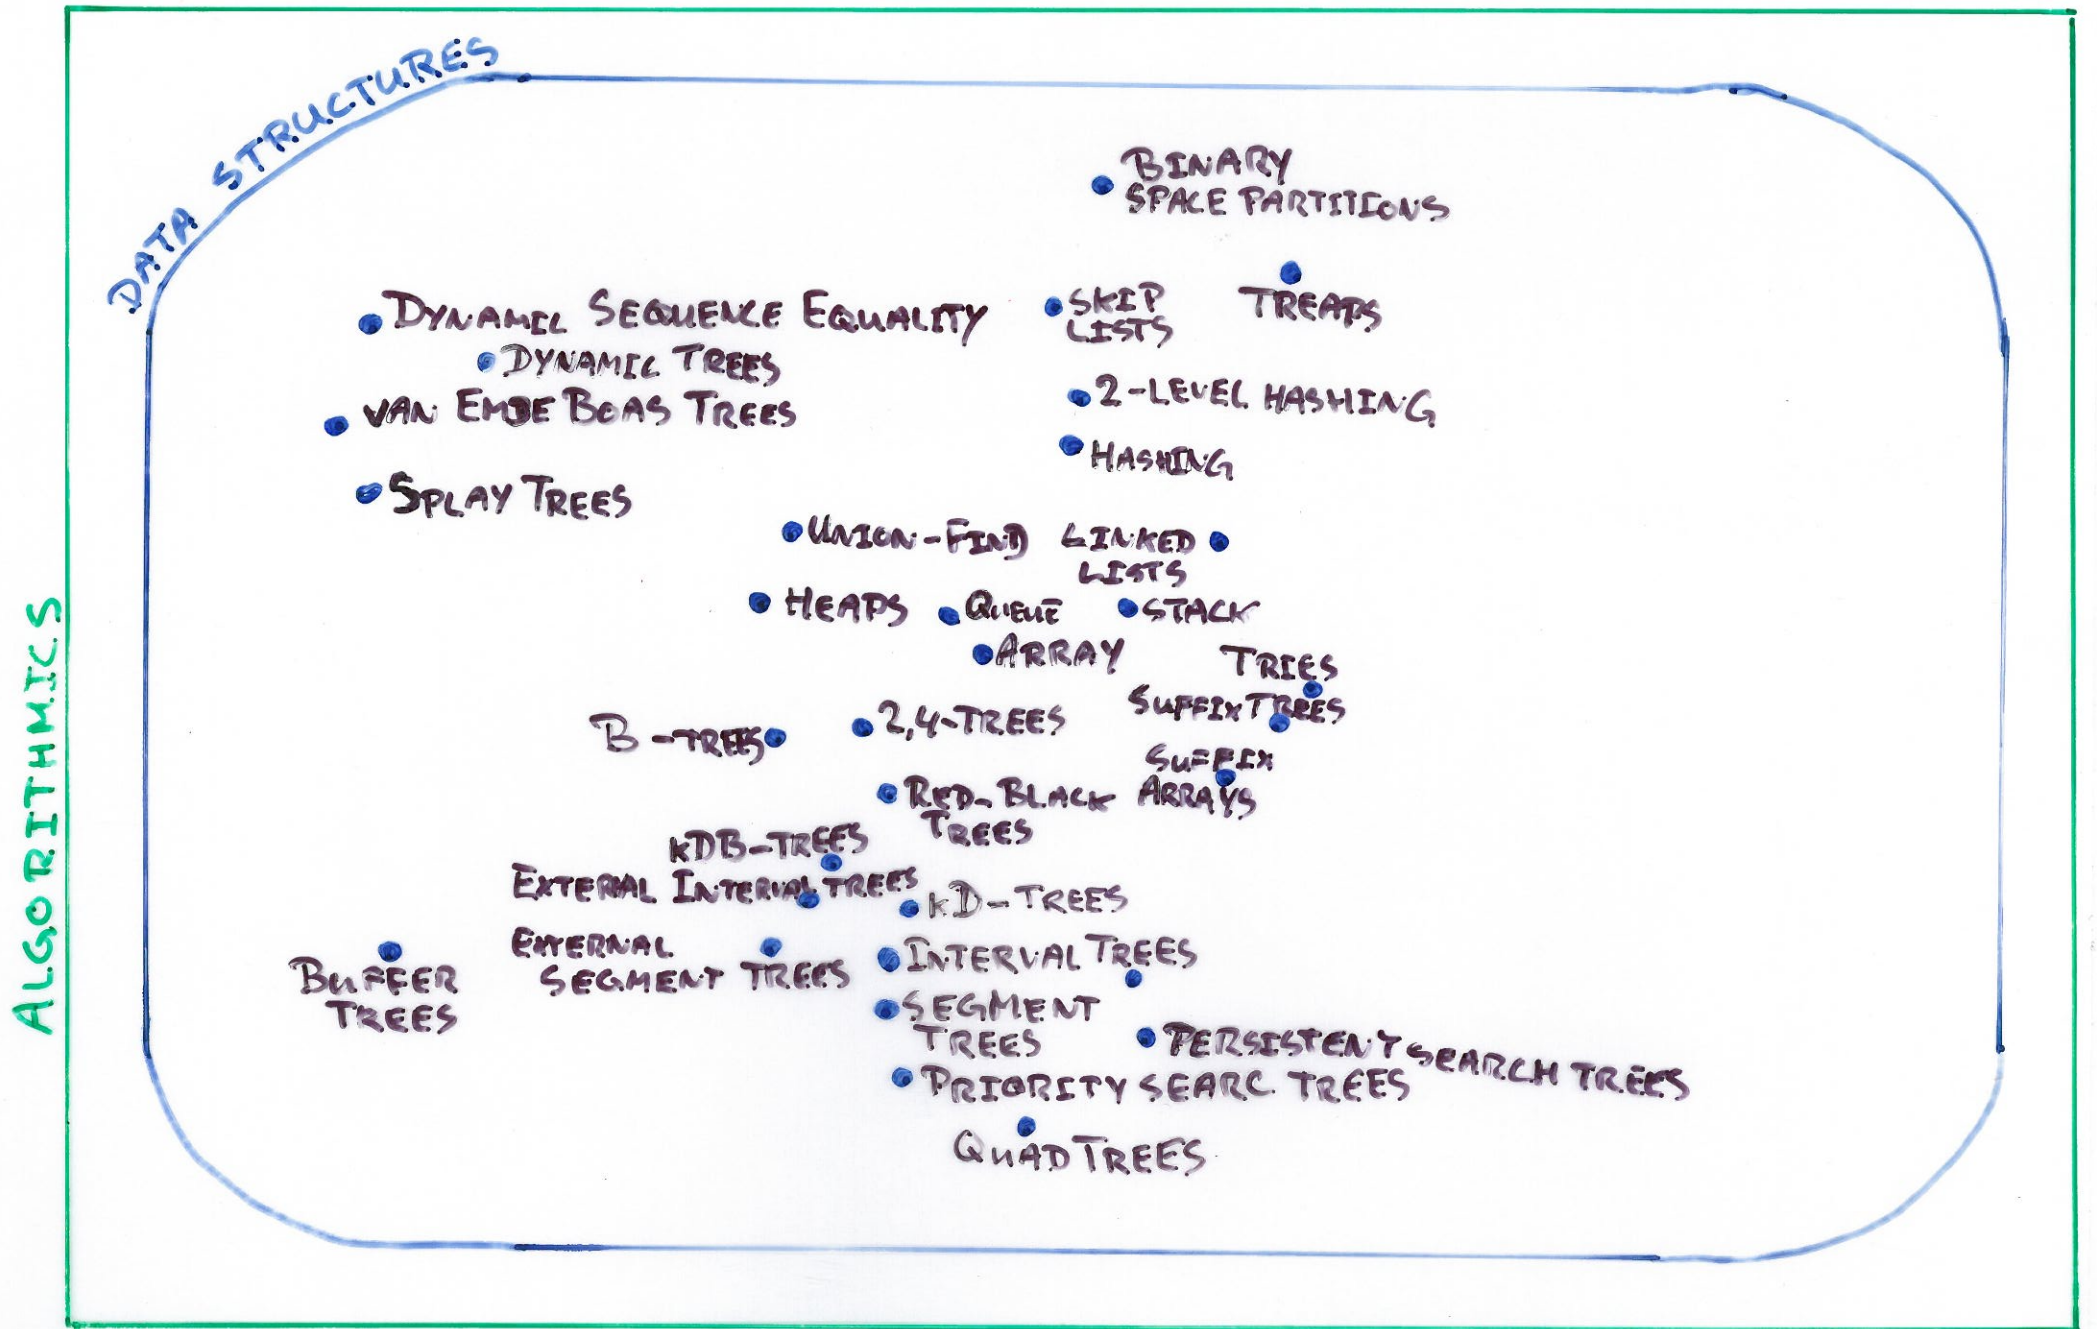 DATA STRUCTURES
BINARY
SPACE PARTITIONS
DYNAMIC SEQUENCE EQUALITY
SKIP
LISTS
TREAPS
DYNAMIC TREES
VAN EMDE BOAS TREES
2-LEVEL HASHING
HASHING
SPLAY TREES
UNION-FIND
LINKED
LISTS
HEAPS
QUEUE
STACK
ARRAY
TRIES
SUFFIX TREES
B-TREES
2,4-TREES
SUFFIX
ARRAYS
RED-BLACK
TREES
kDB-TREES
EXTERNAL INTERVAL TREES
kD-TREES
EXTERNAL
SEGMENT TREES
INTERVAL TREES
BUFFER
TREES
SEGMENT
TREES
PERSISTENT SEARCH TREES
PRIORITY SEARC TREES
QUAD TREES
ALGORITHMICS